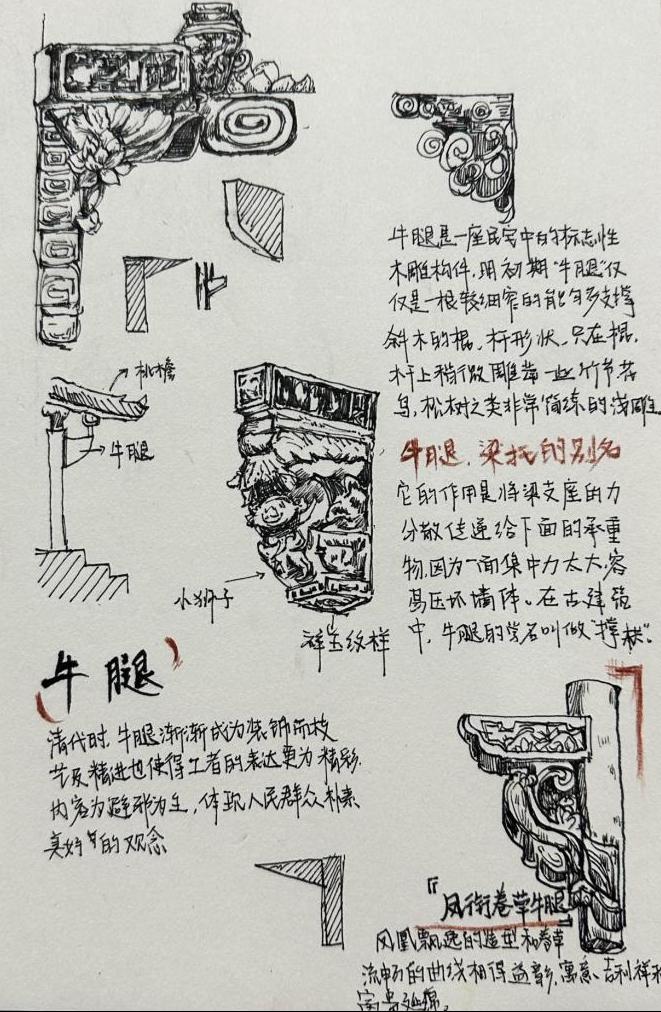 牛腿是一座民宅中的标志性
木雕构件,明初期"牛腿"仅
仅是一根较细窄的能够支撑
斜木的棍、杆形状,只在棍、
木干上稍微雕凿一些竹节花
鸟,松树之类非常简练的浅雕
挑檐
牛腿
牛腿,梁托的别名
它的作用是将梁支座的力
分散传递给下面的承重
物,因为一面集中力太大,容
易压坏墙体。在古建筑
中,牛腿的学名叫做"撑栱"。
小狮子
祥玉纹样
牛腿
清代时,牛腿渐渐成为装饰而技
艺及精进也使得工者的表达更为精彩.
内容为避邪为主,体现人民群众朴素
美好的观念
『凤衔卷草牛腿』
凤凰飘逸的造型和卷草
流畅的曲线相得益彰,寓意、吉利祥和
富贵延绵。